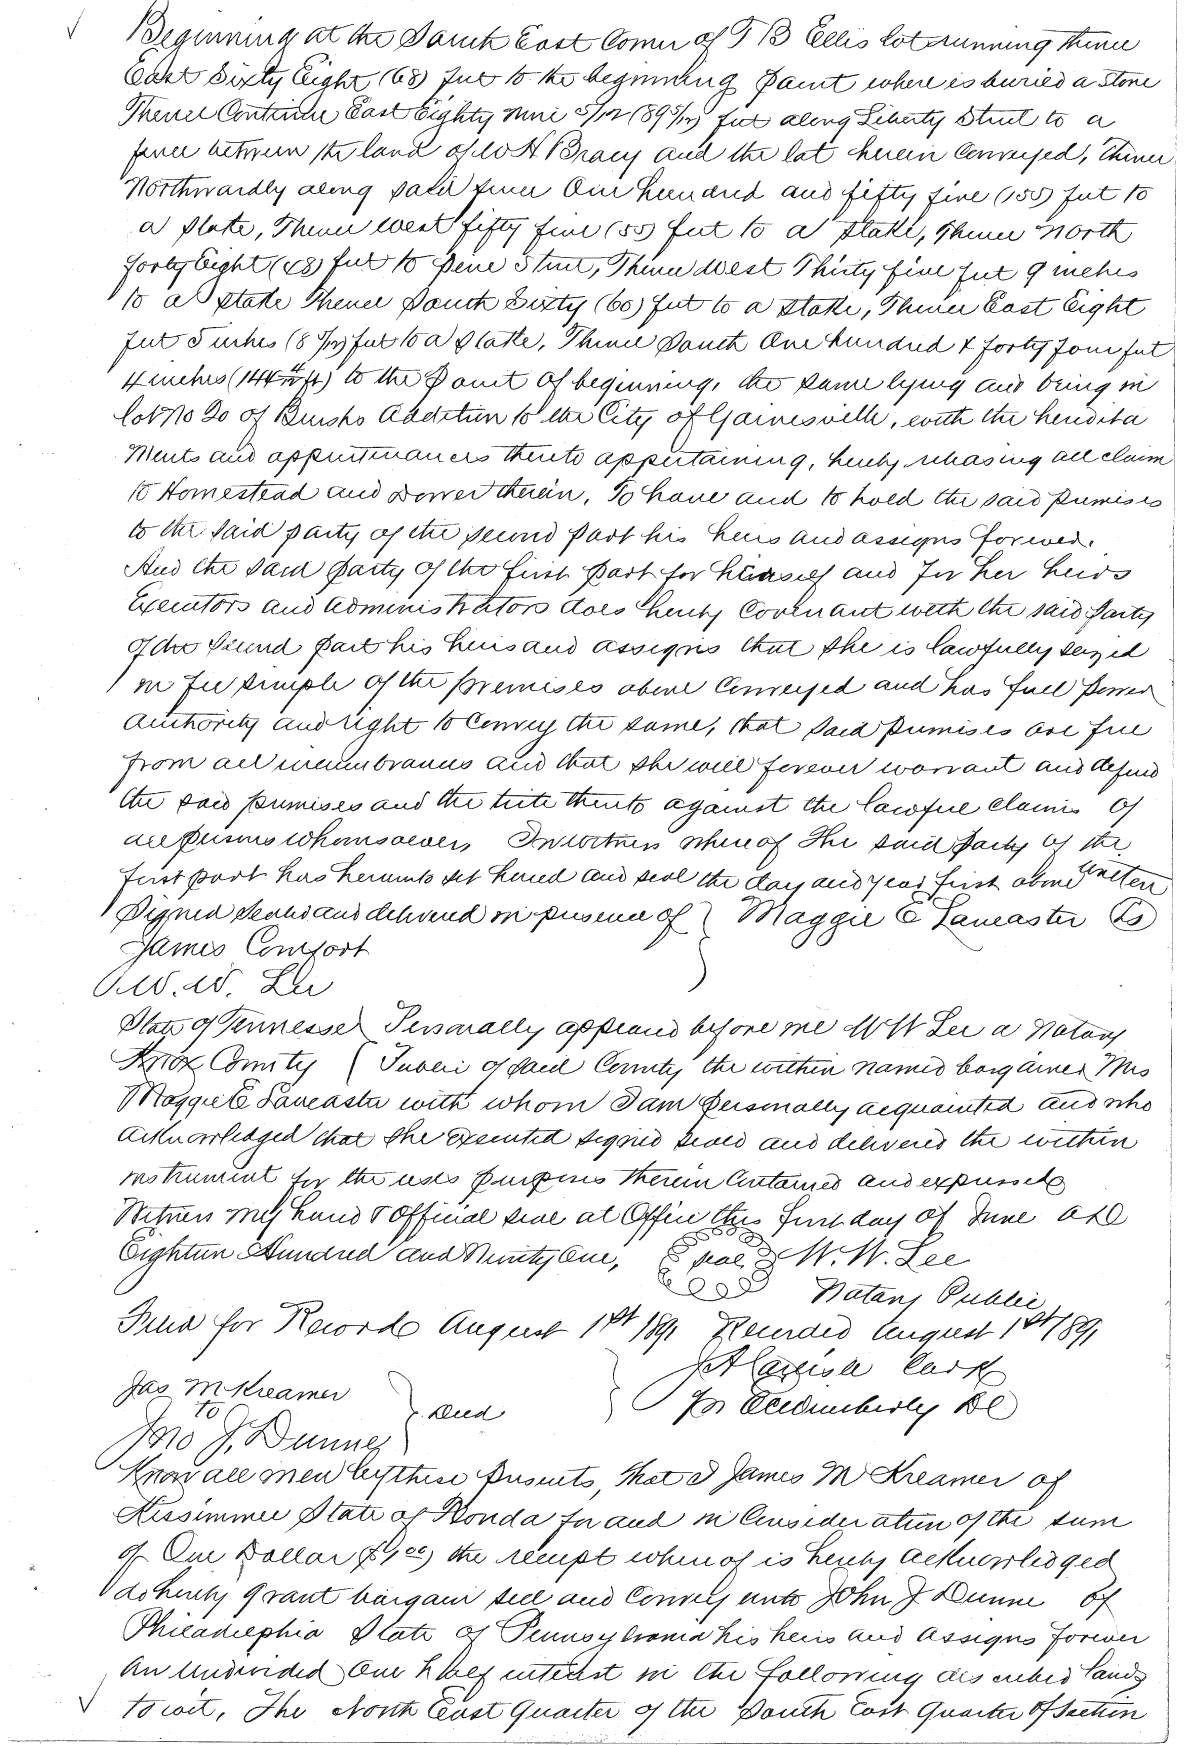 Beginning at the South East Corner of T B Ellis lot running thence
East Sixty Eight (68) feet to the beginning point where is buried a stone
Thence Continue East Eighty nine 5/12 (89 5/12) feet along Liberty Street to a
fence between the land of W H Bracy and the lot herein Conveyed, thence
Northwardly along said fence One hundred and fifty five (155) feet to
a stake, Thence west fifty five (55) feet to a stake, Thence North
forty Eight (48) feet to Pine Street, Thence West Thirty five feet 9 inches
to a stake Thence South Sixty (60) feet to a stake, Thence East Eight
feet 5 inches (8 5/12) feet to a stake, Thence South One hundred & forty four feet
4 inches (144 4/12 ft) to the Point of beginning, the same lying and being in
lot No 20 of Burshs Addition to the City of Gainesville, with the heredita
ments and appurtenances thereto appertaining, hereby releasing all claim
to Homestead and Dower therein, To have and to hold the said premises
to the said party of the second part his heirs and assigns forever.
And the said party of the first part for herself and for her heirs
Executors and administrators does hereby Covenant with the said party
of the second part his heirs and assigns that she is lawfully seized
in fee simple of the premises above Conveyed and has full power
authority and right to Convey the same, that said premises are free
from all incumbrances and that she will forever warrant and defend
the said premises and the title thereto against the lawful claims of
all persons whomsoever, In witness where of The said party of the
first part has hereunto set hand and seal the day and year first above written
Signed sealed and delivered in presence of } Maggie E Lancaster Ls
James Comfort
W. W. Lee
State of Tennessee } Personally appeared before me W W Lee a Notary
Knox County { Public of said County the within named bargainer Mrs
Maggie E Lancaster with whom I am personally acquainted and who
acknowledged that she executed signed seald and delivered the within
instrument for the uses purposes therein Contained and expressed
Witness my hand & Official seal at Office this first day of June A D
Eighteen Hundred and Ninety One, seal W. W. Lee
Notary Public
Filed for Record August 1st 1891 Recorded August 1st 1891
J A Carlisle Clerk
Jas M Kreamer
to } Deed
Jno J. Dunne
Know all men by these presents, that I James M Kreamer of
Kissimmee State of Florida for and in Consideration of the sum
of One Dollar ($1.00) the receipt where of is hereby acknowledged
do hereby grant bargain sell and Convey unto John J Dunne of
Philadelphia State of Pennsylvania his heirs and assigns forever
an undivided One half interest in the following described lands
to wit, The North East Quarter of the South East Quarter Of Section